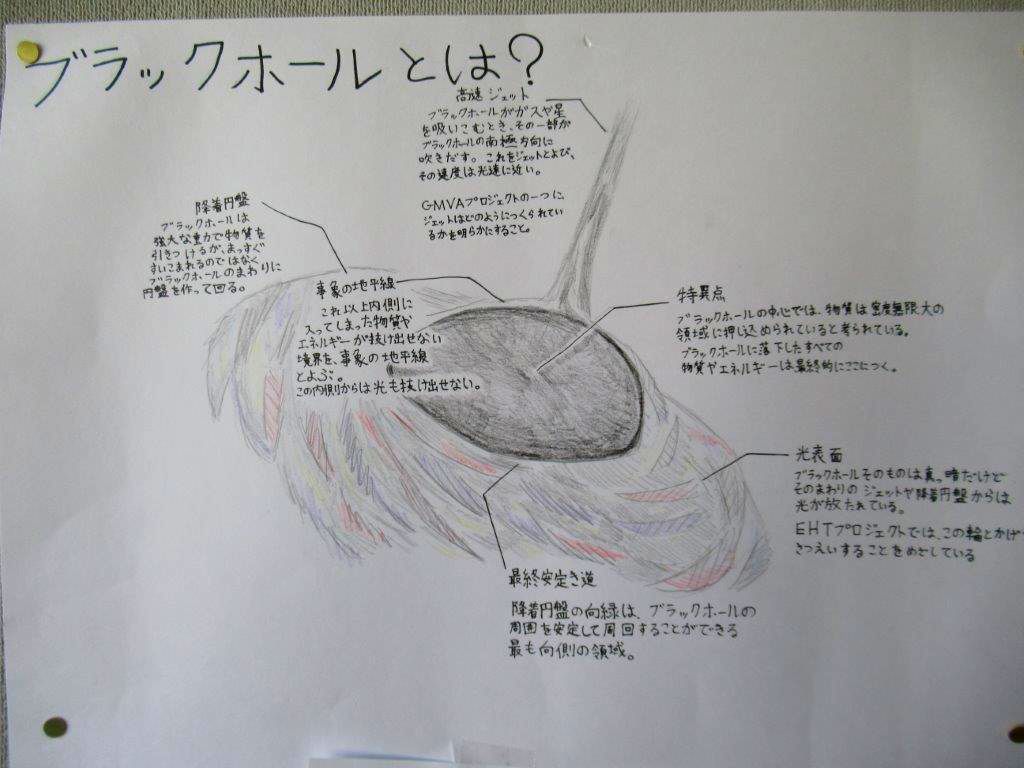 ブラックホールとは？
高速ジェット
ブラックホールがガスや星
を吸いこむとき、その一部が
ブラックホールの南極方向に
吹きだす。これをジェットとよび、
その速度は光速に近い。
GMVAプロジェクトの一つに
ジェットはどのようにつくられてい
るかを明らかにすること。
降着円盤
ブラックホールは
強大な重力で物質を
引きつけるが、まっすぐ
すいこまれるのではなく
ブラックホールのまわりに
円盤を作って回る。
事象の地平線
これ以上内側に
入ってしまった物質や
エネルギーが抜け出せない
境界を、事象の地平線
とよぶ。
この内側からは光も抜け出せない。
特異点
ブラックホールの中心では、物質は密度無限大の
領域に押し込められていると考られている。
ブラックホールに落下したすべての
物質やエネルギーは最終的にここにつく。
光表面
ブラックホールそのものは真っ暗だけど
そのまわりのジェットや降着円盤からは
光が放たれている。
EHTプロジェクトでは、この輪とかげ
さつえいすることをめざしている
最終安定き道
降着円盤の向縁は、ブラックホールの
周囲を安定して周回することができる
最も向側の領域。